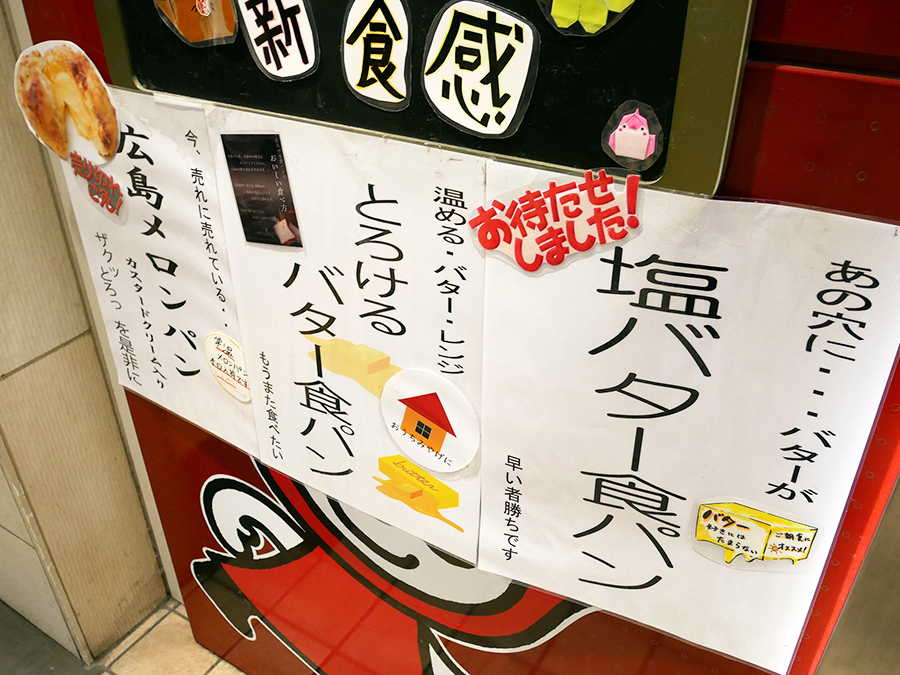 新食感
あの穴に・・・バターが
塩バター食パン
早い者勝ちです
お待たせ
しました!
バター
好きには
たまらない
ご朝食に
オススメ!
温める・バター・レンジ
とろける
バター食パン
もうまた食べたい
おうちみやげに
butter
おいしい食べ方
今、売れに売れている・・
広島メロンパン
カスタードクリーム入り
ザクッとろっを是非に